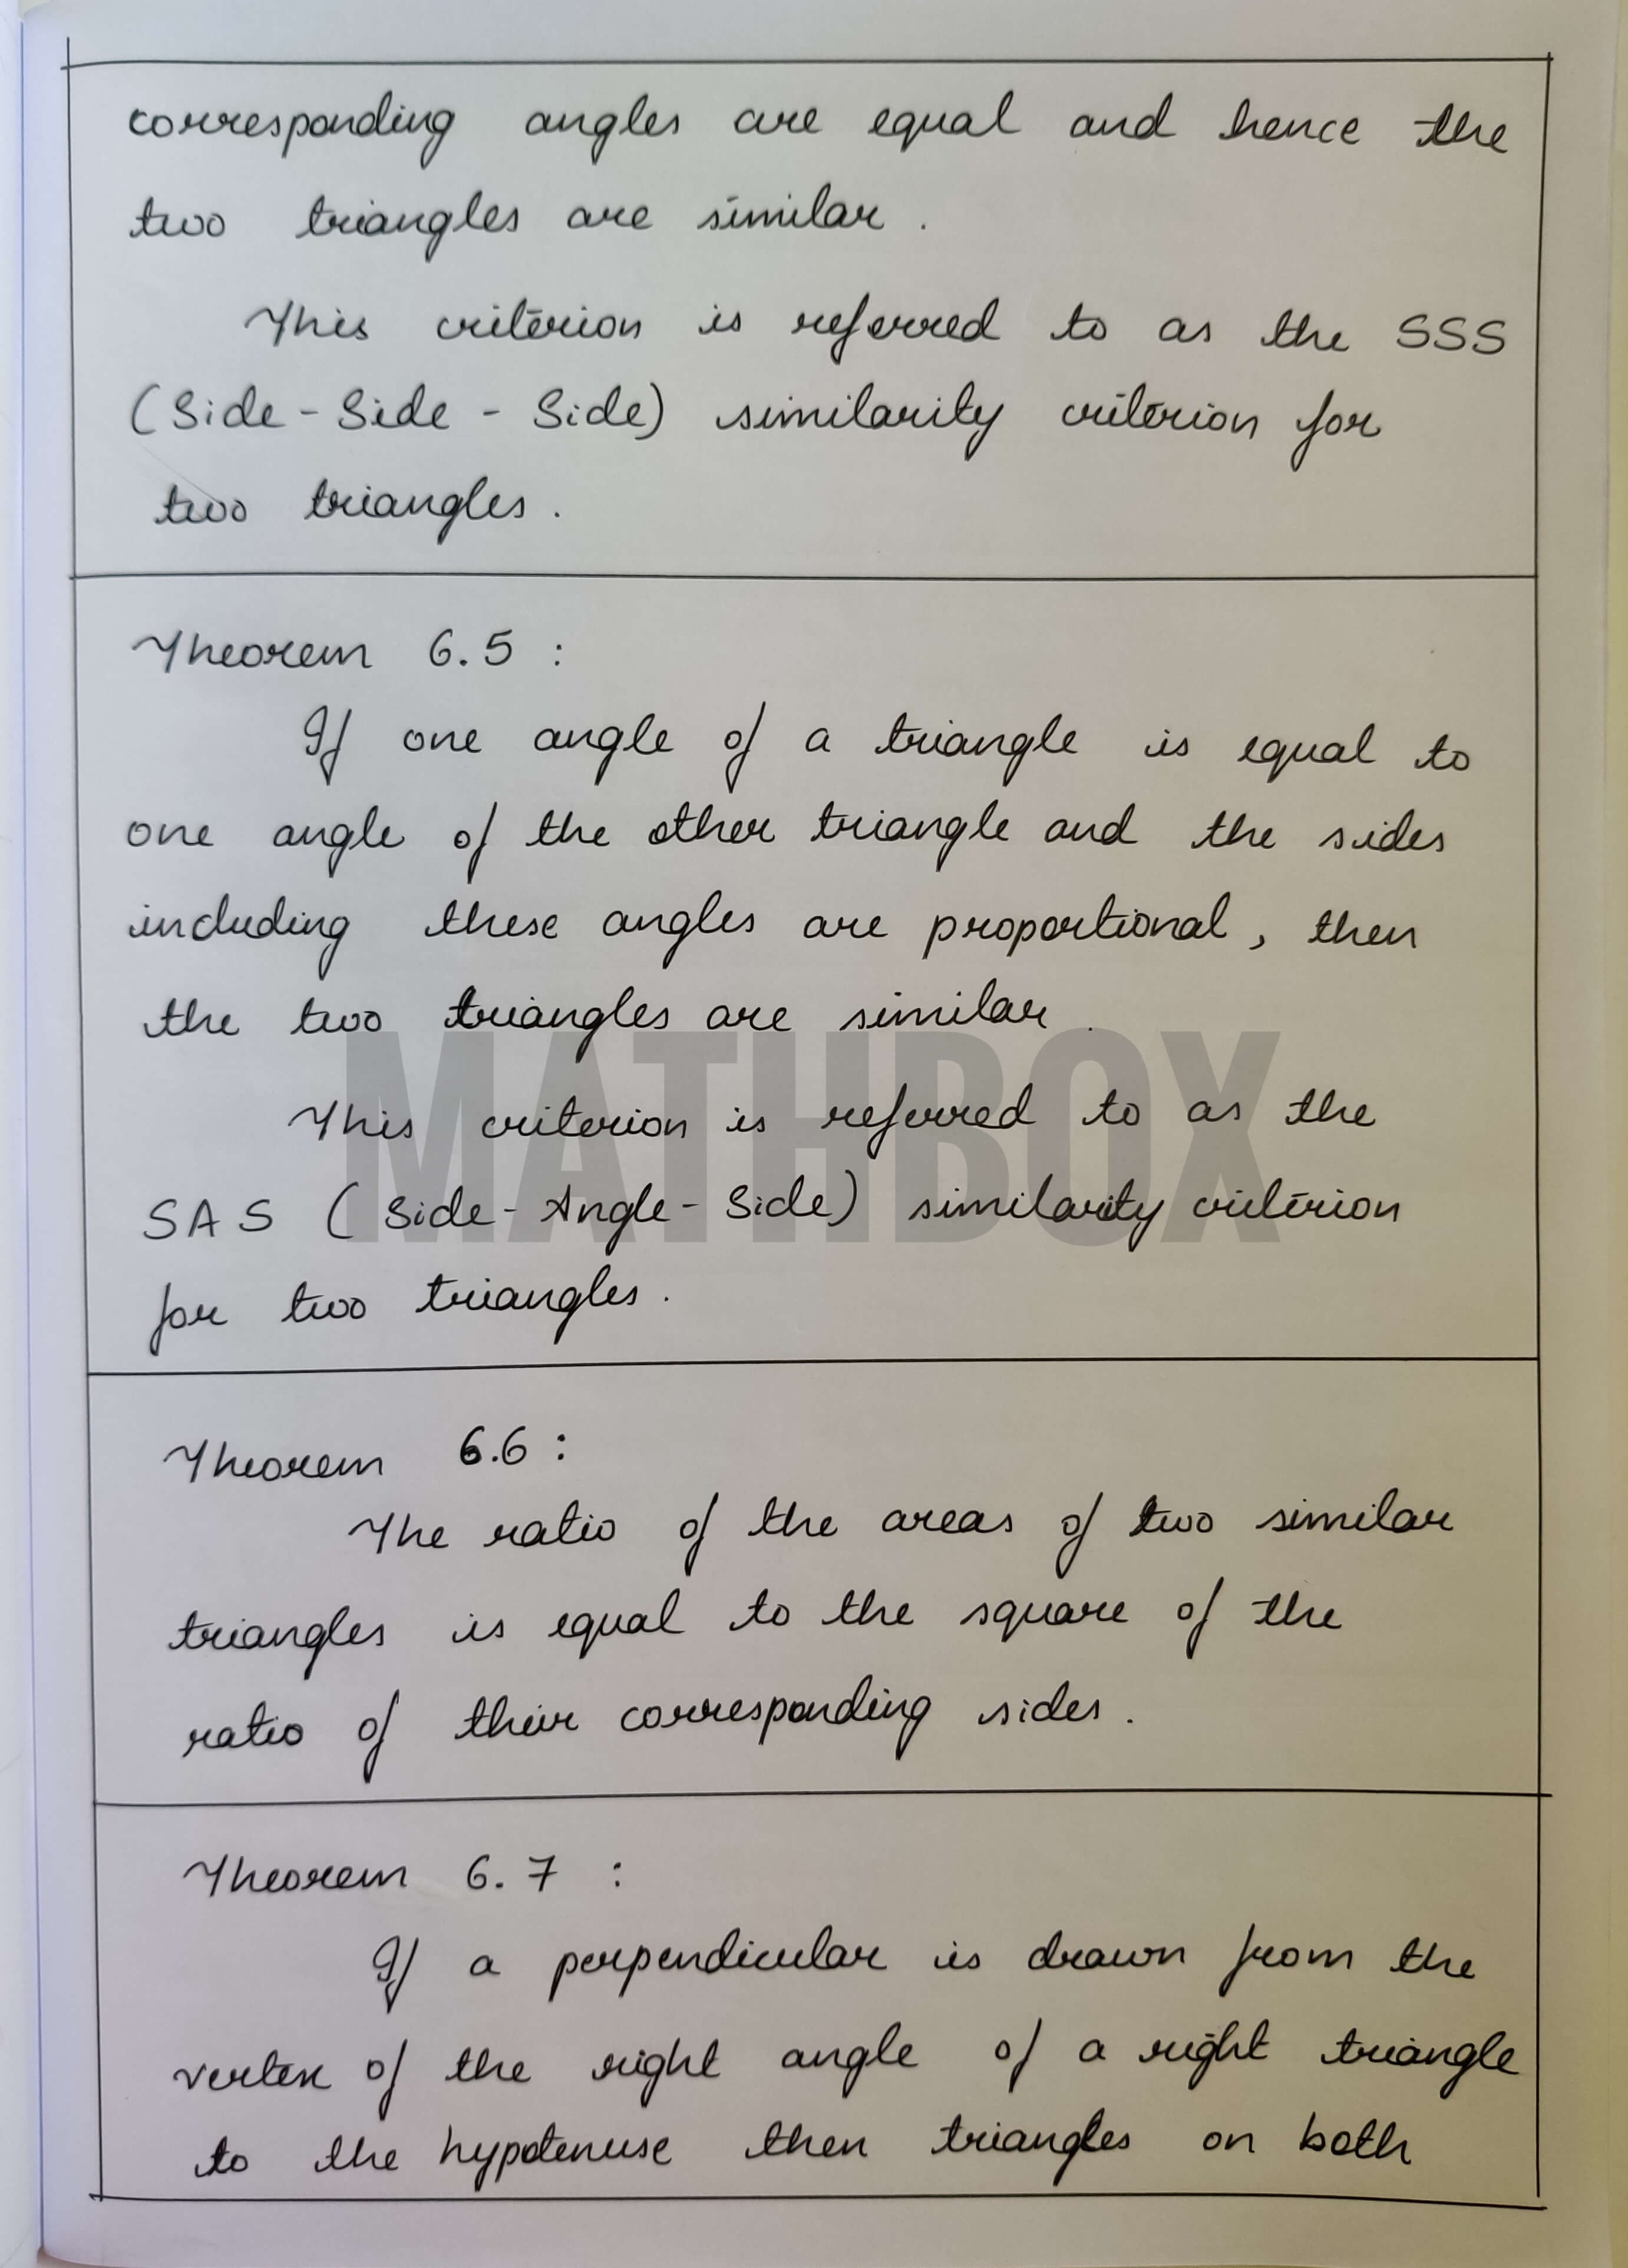 corresponding angles are equal and hence the
two triangles are similar.
This criterion is referred to as the SSS
(Side - Side - Side) similarity criterion for
two triangles.
Theorem 6.5 :
If one angle of a triangle is equal to
one angle of the other triangle and the sides
including these angles are proportional, then
the two triangles are similar.
MATHBOX
This criterion is referred to as the
SAS (Side - Angle - Side) similarity criterion
for two triangles.
Theorem 6.6 :
The ratio of the areas of two similar
triangles is equal to the square of the
ratio of their corresponding sides.
Theorem 6.7 :
If a perpendicular is drawn from the
vertex of the right angle of a right triangle
to the hypotenuse then triangles on both